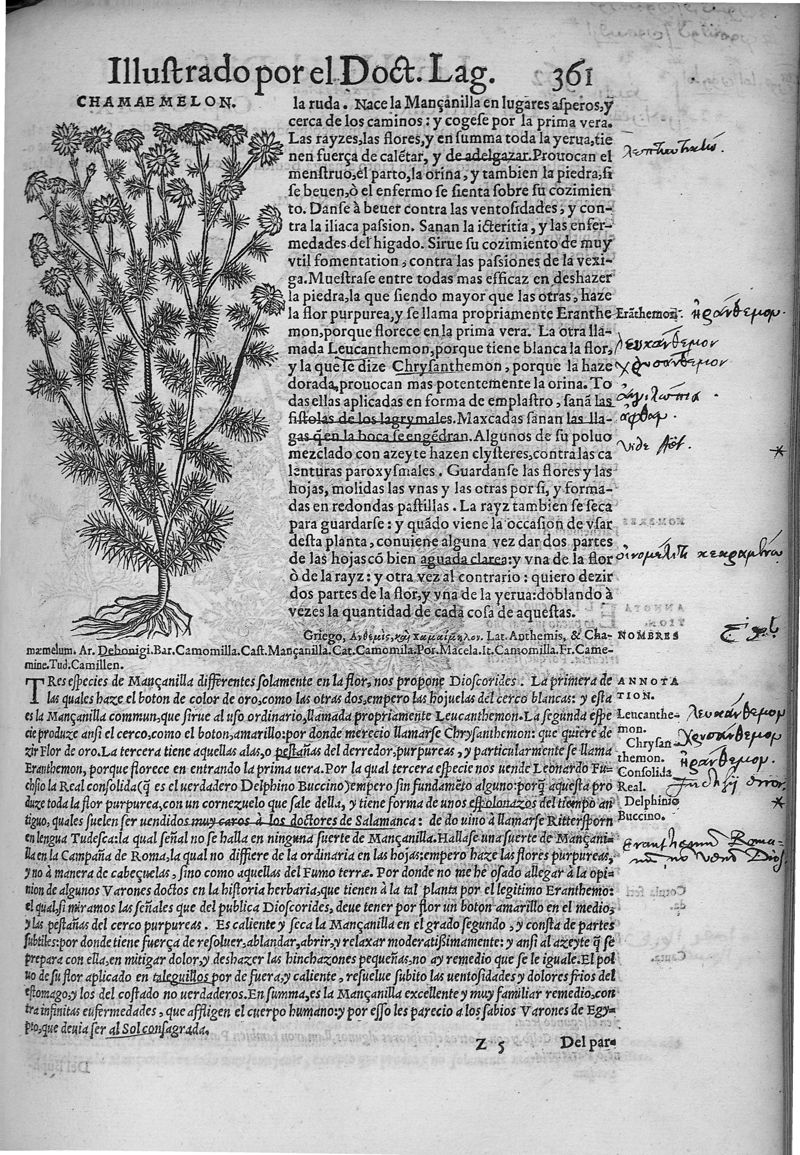 Illustrado por el Doct. Lag. 361
CHAMAEMELON.
la ruda. Nace la Mançanilla en lugares asperos, y
cerca de los caminos: y cogese por la prima vera.
Las rayzes, las flores, y en summa toda la yerua, tie
nen fuerça de calẽtar, y de adelgazar. Prouocan el
menstruo, el parto, la orina, y tambien la piedra, si
se beuen, ò el enfermo se sienta sobre su cozimien
to. Danse à beuer contra las ventosidades, y con-
tra la iliaca passion. Sanan la icteritia, y las enfer-
medades del higado. Sirue su cozimiento de muy
vtil fomentation, contra las passiones de la vexi-
ga. Muestrase entre todas mas efficaz en deshazer
la piedra, la que siendo mayor que las otras, haze
la flor purpurea, y se llama propriamente Eranthe
mon, porque florece en la prima vera. La otra lla-
mada Leucanthemon, porque tiene blanca la flor,
y la que se dize Chrysanthemon, porque la haze
dorada, prouocan mas potentemente la orina. To
das ellas aplicadas en forma de emplastro, sanã las
fistolas de los lagrymales. Maxcadas sanan las lla-
gas q̃ en la boca se engẽdran. Algunos de su poluo
mezclado con azeyte hazen clysteres, contra las ca
lenturas paroxysmales. Guardanse las flores y las
hojas, molidas las vnas y las otras por si, y forma-
das en redondas pastillas. La rayz tambien se seca
para guardarse: y quãdo viene la occasion de vsar
desta planta, conuiene alguna vez dar dos partes
de las hojas cõ bien aguada clarea: y vna de la flor
ò de la rayz: y otra vez al contrario: quiero dezir
dos partes de la flor, y vna de la yerua: doblando à
vezes la quantidad de cada cosa de aquestas.
Erãthemon. ἠράνθεμον.
λευκάνθεμον
χρυσάνθεμον
vide Aët.
*
Griego, Ανθεμὶς, καὶ χαμαίμηλον. Lat. Anthemis, & Cha-
NOMBRES
mæmelum. Ar. Debonigi. Bar. Camomilla. Cast. Mançanilla. Cat. Camomila. Por. Macela. It. Camomilla. Fr. Came-
mine. Tud. Camillen.
TRes especies de Mançanilla differentes solamente en la flor, nos propone Dioscorides. La primera de
las quales haze el boton de color de oro, como las otras dos, empero las hojuelas del cerco blancas: y esta
es la Mançanilla commun, que sirue al uso ordinario, llamada propriamente Leucanthemon. La segunda espe
cie produze ansi el cerco, como el boton, amarillo: por donde merecio llamarse Chrysanthemon: que quiere de
zir Flor de oro. La tercera tiene aquellas alas, o pestañas del derredor, purpureas, y particularmente se llama
Eranthemon, porque florece en entrando la prima vera. Por la qual tercera especie nos uende Leonardo Fu-
chsio la Real consolida (q̃ es el verdadero Delphino Buccino) empero sin fundamẽto alguno: porq̃ aquesta pro
duze toda la flor purpurea, con un cornezuelo que sale della, y tiene forma de unos espolonazos del tiempo an
tiguo, quales suelen ser uendidos muy caros à los doctores de Salamanca: de do vino à llamarse Ritterssporn
en lengua Tudesca: la qual señal no se halla en ninguna suerte de Mançanilla. Hallase una suerte de Mançani-
lla en la Campaña de Roma, la qual no differe de la ordinaria en las hojas: empero haze las flores purpureas,
y no à manera de cabeçuelas, sino como aquellas del Fumo terræ. Por donde no me hè osado allegar à la opi-
nion de algunos Varones doctos en la historia herbaria, que tienen à la tal planta por el legitimo Eranthemo:
el qual, si miramos las señales que del publica Dioscorides, deue tener por flor un boton amarillo en el medio,
y las pestañas del cerco purpureas. Es caliente y seca la Mançanilla en el grado segundo, y consta de partes
subtiles: por donde tiene fuerça de resoluer, ablandar, abrir, y relaxar moderatißimamente: y ansi al azeyte q̃ se
prepara con ella, en mitigar dolor, y deshazer las hinchazones pequeñas, no ay remedio que se le iguale. El pol
uo de su flor aplicado en taleguillos por de fuera, y caliente, resuelue subito las uentosidades y dolores frios del
estomago, y los del costado no uerdaderos. En summa, es la Mançanilla excellente y muy familiar remedio, con
tra infinitas enfermedades, que affligen el cuerpo humano: y por esso les parecio a los sabios Varones de Egy-
pto, que deuia ser al Sol consagrada.
ANNOTA
TION.
Leucanthe-
mon.
Chrysan-
themon.
Consolida
Real.
Delphinio
Buccino.
λευκάνθεμον
χρυσάνθεμον
ἠράνθεμον.
Fuchsij error.
*
Z 5
Del par-